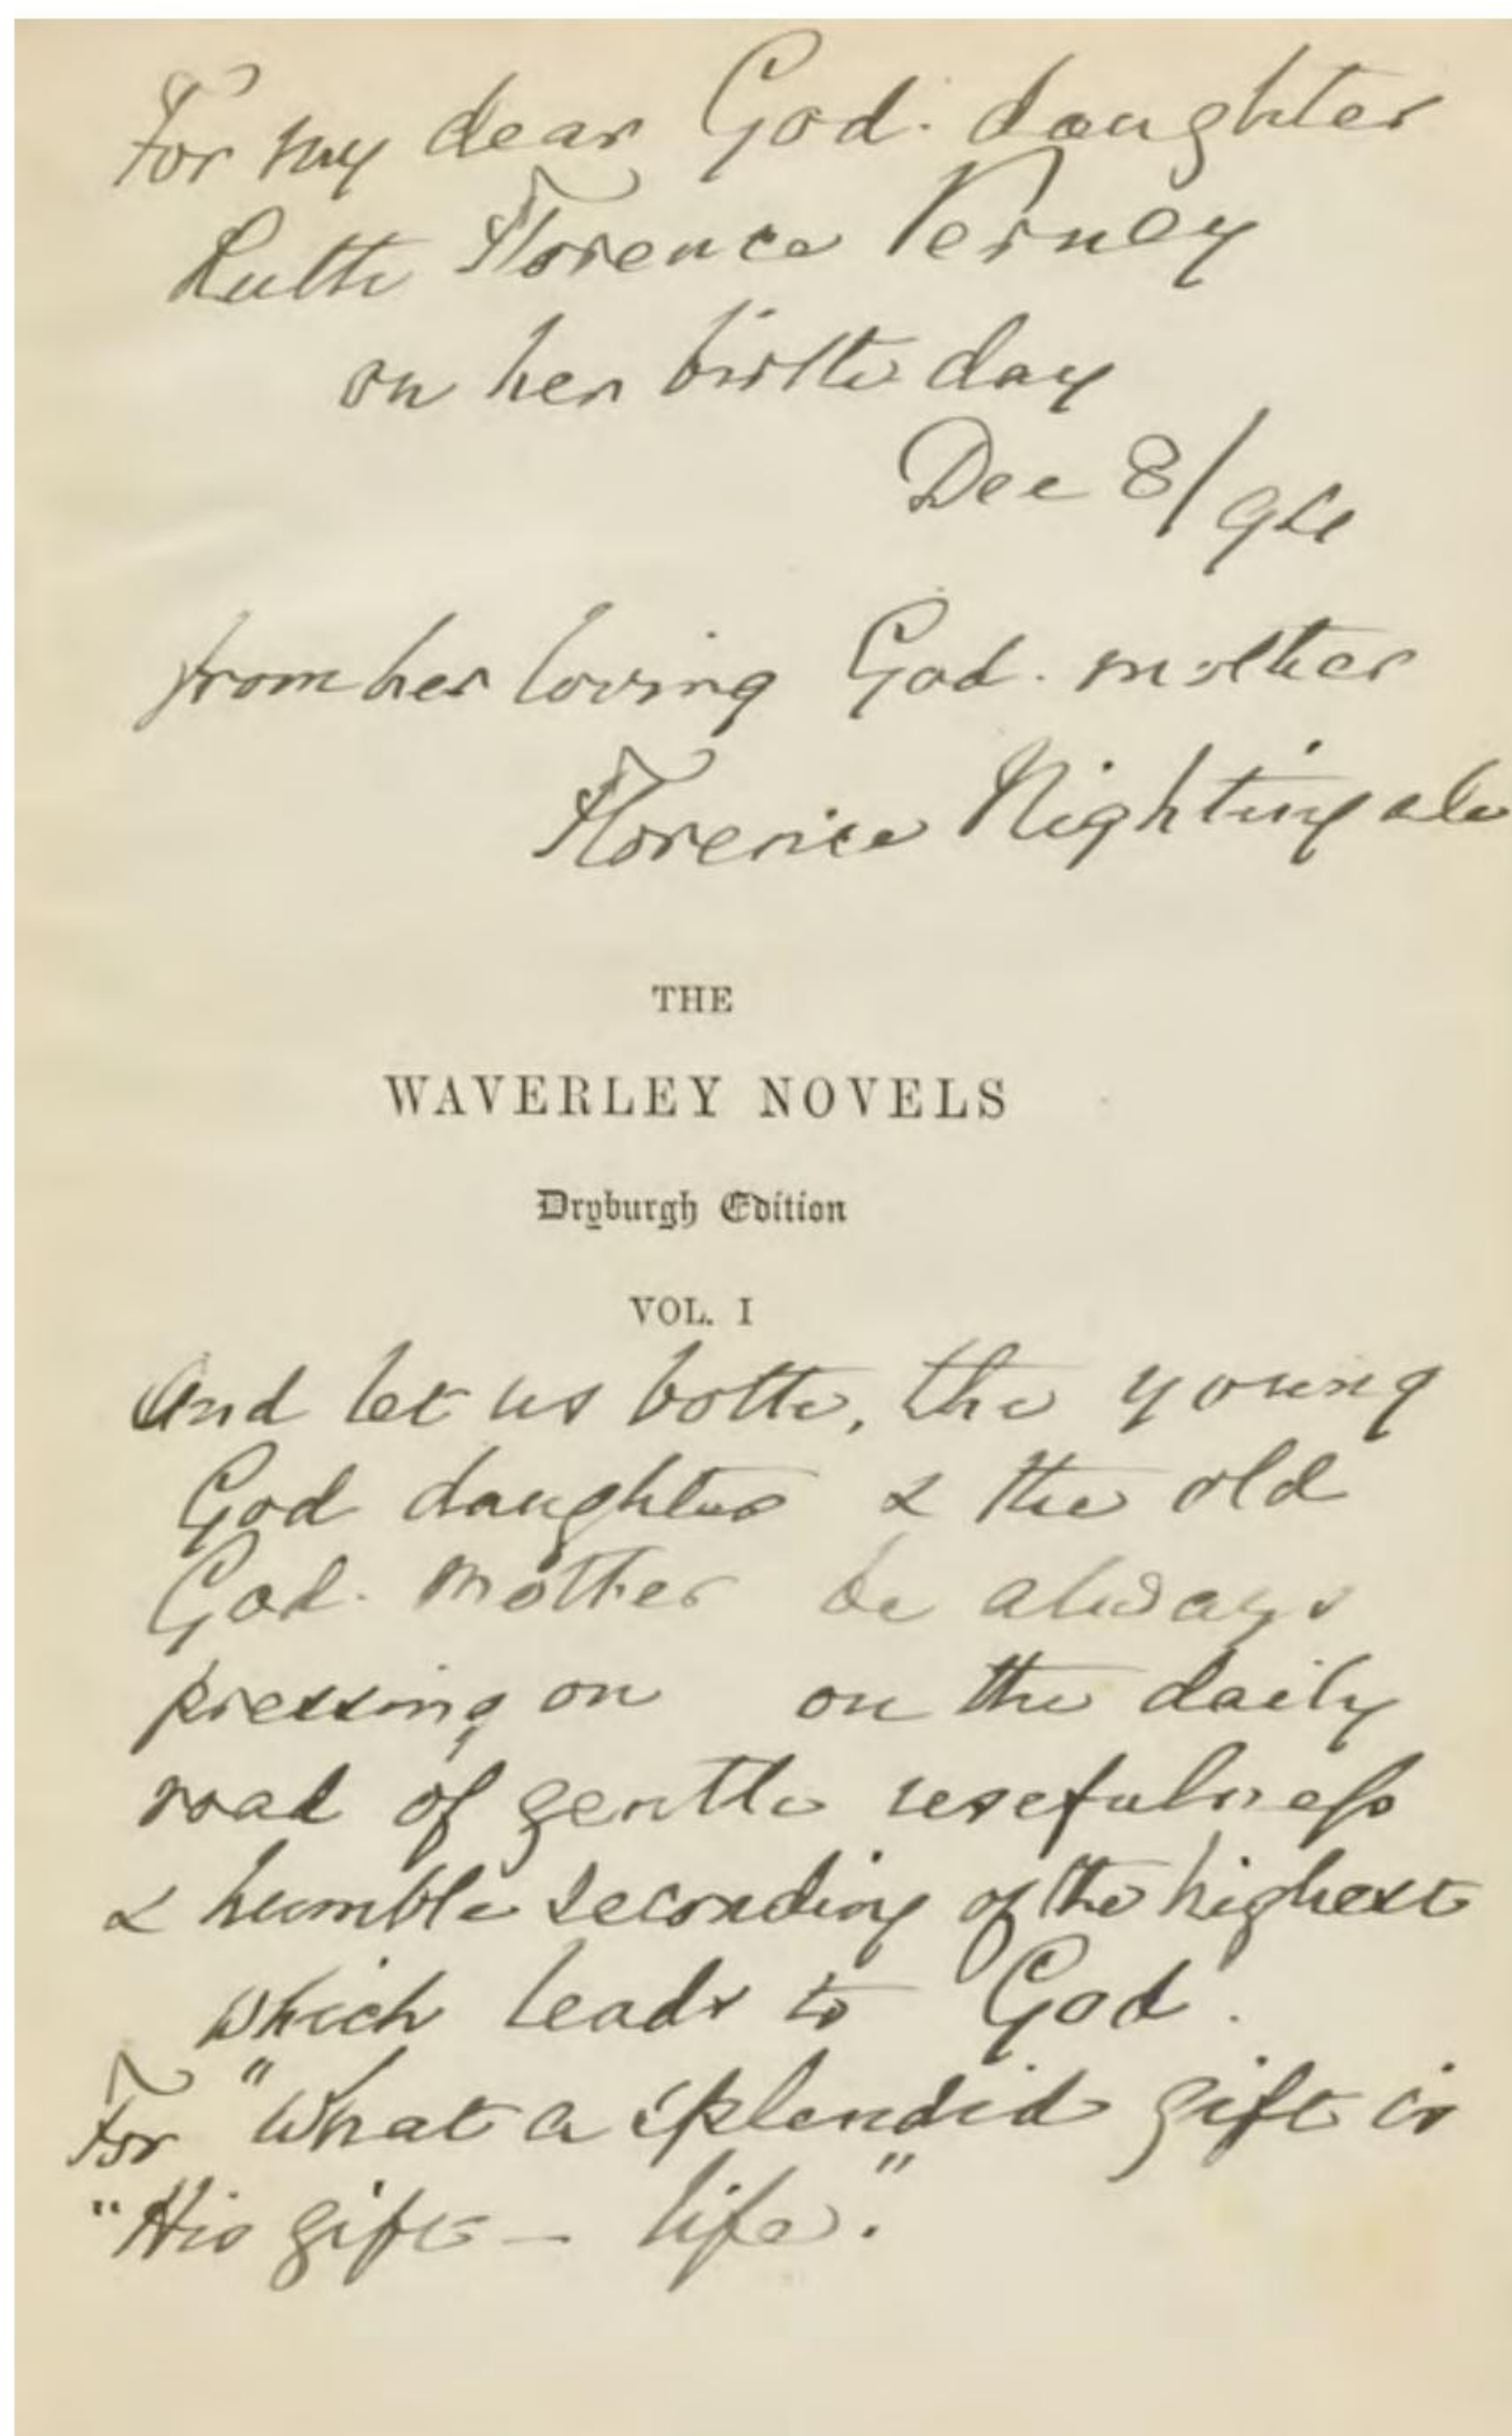 For my dear God-daughter
Ruth Florence Verney
on her birth day
Dec 8/94
from her loving God-mother
Florence Nightingale
THE
WAVERLEY NOVELS
Dryburgh Edition
VOL. I
And let us both, the young
God daughter & the old
God-mother be always
pressing on on the daily
road of gentle usefulness
& humble seconding of the highest
which leads to God.
For "What a splendid gift is
"His gift — life."